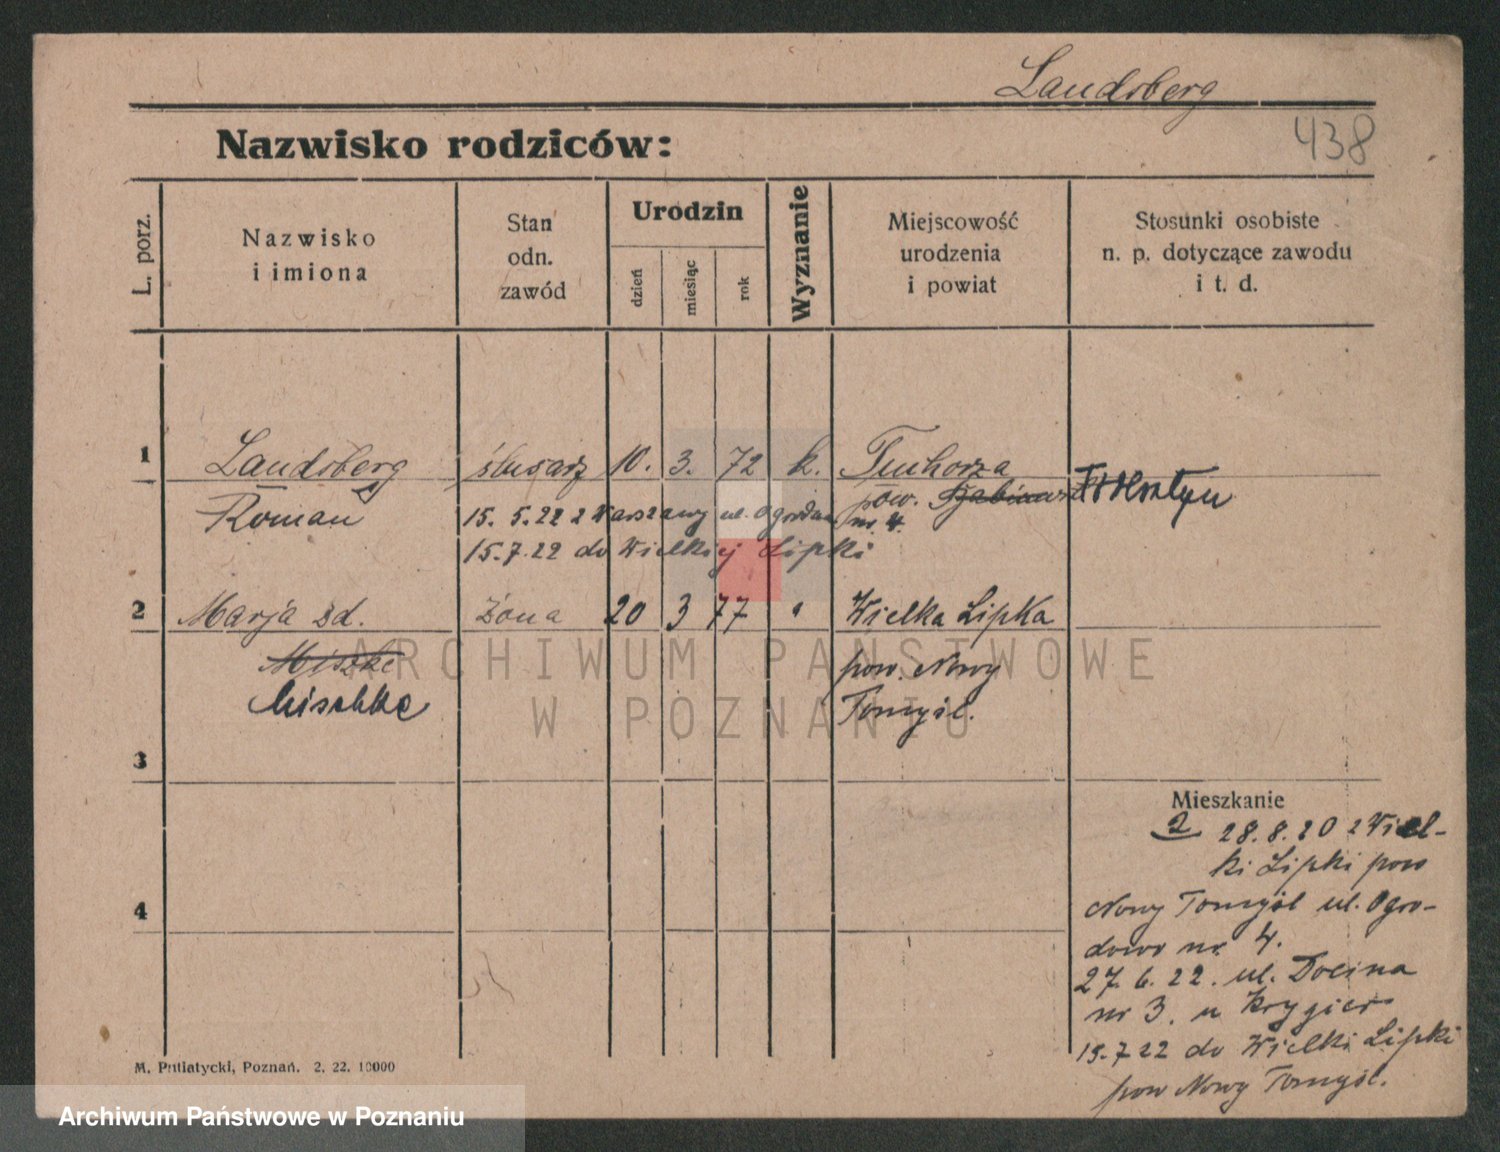 Landsberg
438
Nazwisko rodziców:
L. porz.
Nazwisko
i imiona
Stan
odn.
zawód
Urodzin
dzień
miesiąc
rok
Wyznanie
Miejscowość
urodzenia
i powiat
Stosunki osobiste
n. p. dotyczące zawodu
i t. d.
1 Landsberg ślusarz 10. 3. 72 k. Tuchorza
Roman
15. 5. 22 z Warszawy ul. Ogrodowa nr. 4.
pow. Wolsztyn
15. 7. 22 do Wielkiej Lipki
2 Marja zd. żona 20 3 77 " Wielka Lipka
Miszke
Mischke
pow. Nowy
Tomyśl.
3
4
Mieszkanie
2 28. 8. 20 z Wiel-
ki Lipki pow
Nowy Tomyśl ul. Ogro-
dowa nr. 4.
27. 6. 22. ul. Dolna
nr 3. u Krygier
15. 7 22 do Wielki Lipki
pow Nowy Tomyśl.
M. Putiatycki, Poznań. 2, 22. 10000
ARCHIWUM PAŃSTWOWE
W POZNANIU
Archiwum Państwowe w Poznaniu